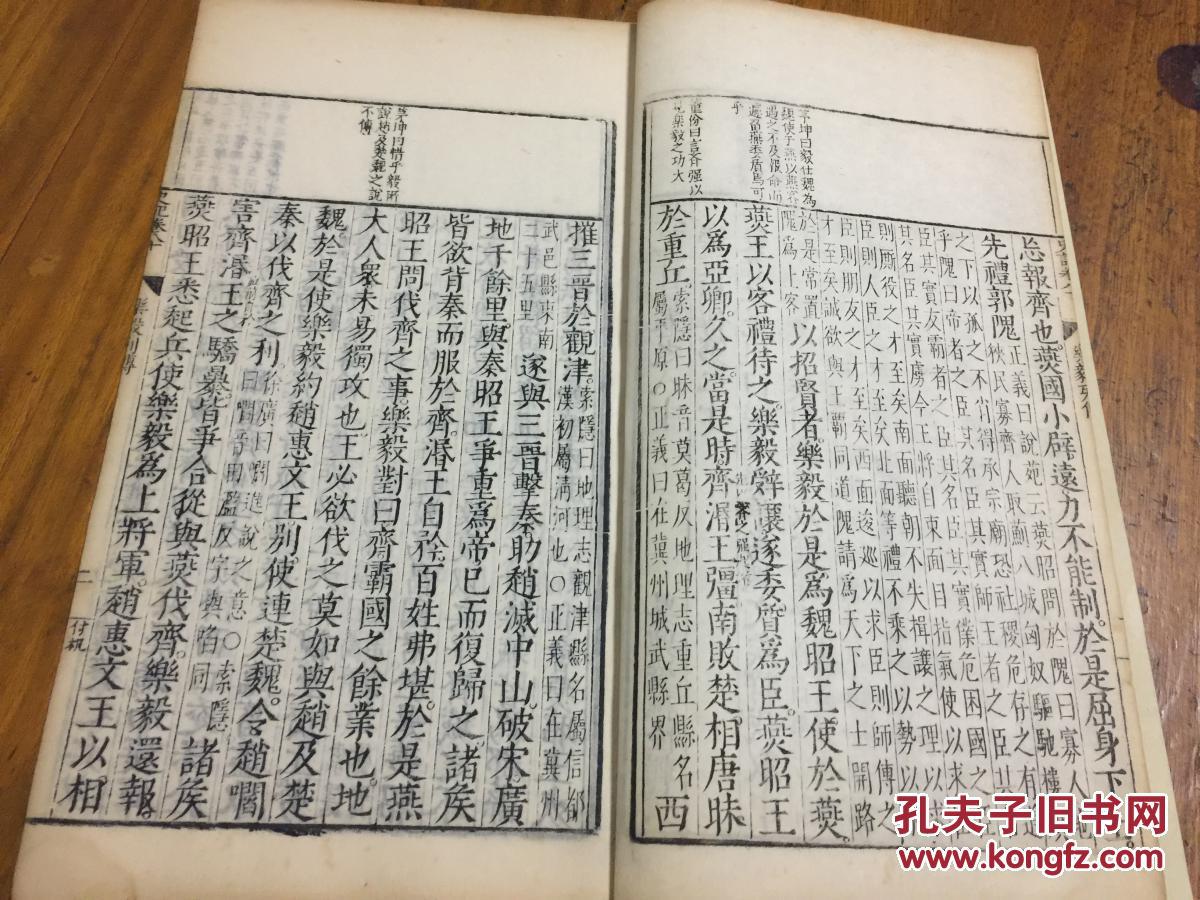 茅坤曰毅仕魏為
魏使于燕以燕客
遇之不及報命而
遂留燕委質焉可
乎
董份曰言齊强以
見樂毅之功大
怨報齊也。燕國小辟遠力不能制。於是屈身下士。
先禮郭隗
正義曰說苑云燕昭問於隗曰寡人地
狹民寡齊人取薊八城匈奴驅馳樓
之下以孤之不肖得承宗廟恐社稷危存之有道
乎隗曰帝者之臣其名臣其實師王者之臣
臣其實友霸者之臣其名臣其實僕危困國之臣
其名臣其實虜今王將自東面目指氣使以求臣
則厮役之才至矣南面聽朝不失揖讓之理以求
臣則人臣之才至矣北面等禮不乘之以勢以求
臣則朋友之才至矣西面逡巡以求臣則師傅之
才至矣誠欲與王霸同道隗請為天下之士開路
於是常置
隗為上客
以招賢者。樂毅於是。爲魏昭王使於燕。
燕王以客禮待之。樂毅辭讓。遂委質爲臣。燕昭王
以爲亞卿。久之。當是時。齊湣王彊南敗楚相。唐昧
於重丘。
索隱曰昧音莫葛反地理志重丘縣名
屬平原○正義曰在冀州城武縣界
西
樂毅列傳
茅坤曰惜乎毅所
說趙及楚魏之說
不傳
摧三晉於觀津。
索隱曰地理志觀津縣名屬信都
漢初屬清河也○正義曰在冀州
武邑縣東南
二十五里
遂與三晉擊秦。助趙滅中山。破宋廣
地千餘里。與秦昭王爭重爲帝。已而復歸之。諸矦
皆欲背秦而服於齊。湣王自矜。百姓弗堪。於是燕
昭王問伐齊之事。樂毅對曰。齊霸國之餘業也。地
大人衆。未易獨攻也。王必欲伐之。莫如與趙及楚
魏。於是使樂毅約趙惠文王。別使連楚魏。令趙嚪
秦以伐齊之利。
徐廣曰嚪進說之意○索隱
曰嚪音田濫反字與啗同
諸矦
害齊湣王之驕暴。皆爭合從。與燕伐齊。樂毅還報。
燕昭王悉起兵。使樂毅爲上將軍。趙惠文王以相
史記卷八十
樂毅列傳
二
孔夫子旧书网
www.kongfz.com